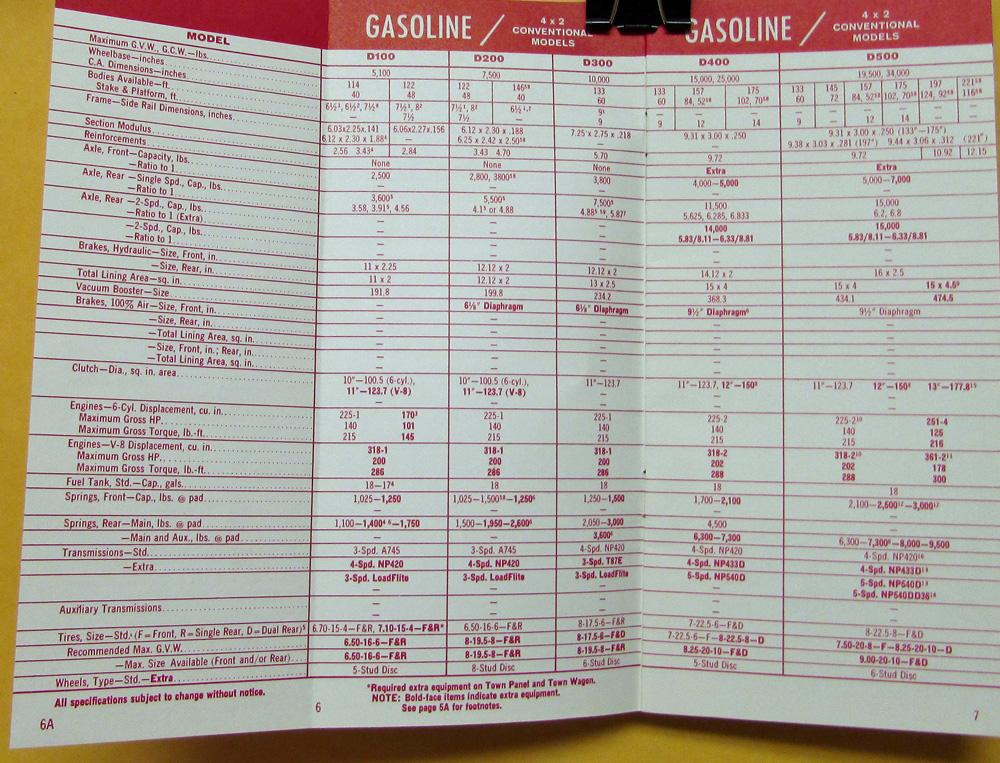 MODEL
Maximum G.V.W., G.C.W.—lbs.
Wheelbase—inches
C.A. Dimensions—inches
Bodies Available—ft.
Stake & Platform, ft.
Frame—Side Rail Dimensions, inches
Section Modulus
Reinforcements
Axle, Front—Capacity, lbs.
—Ratio to 1
Axle, Rear—Single Spd., Cap., lbs.
—Ratio to 1
Axle, Rear—2-Spd., Cap., lbs.
—Ratio to 1 (Extra)
—2-Spd., Cap., lbs.
—Ratio to 1
Brakes, Hydraulic—Size, Front, in.
—Size, Rear, in.
Total Lining Area—sq. in.
Vacuum Booster—Size
Brakes, 100% Air—Size, Front, in.
—Size, Rear, in.
—Total Lining Area, sq. in.
—Size, Front, in.; Rear, in.
—Total Lining Area, sq. in.
Clutch—Dia., sq. in. area
Engines—6-Cyl. Displacement, cu. in.
Maximum Gross HP
Maximum Gross Torque, lb.-ft.
Engines—V-8 Displacement, cu. in.
Maximum Gross HP
Maximum Gross Torque, lb.-ft.
Fuel Tank, Std.—Cap., gals.
Springs, Front—Cap., lbs. @ pad
Springs, Rear—Main, lbs. @ pad
—Main and Aux., lbs. @ pad
Transmissions—Std.
—Extra
Auxiliary Transmissions
Tires, Size—Std. (F=Front, R=Single Rear, D=Dual Rear)⁵
Recommended Max. G.V.W.
—Max. Size Available (Front and/or Rear)
Wheels, Type—Std.—Extra
All specifications subject to change without notice.
6A
GASOLINE / 4 x 2 CONVENTIONAL MODELS
D100 D200 D300
5,100 7,500 10,000
114 122 122 146¹⁸ 133
40 48 48 40 60
6½¹, 6½², 7½⁸ 7½¹, 8² 7½¹, 8² 6½¹˒² 9¹
— 7½ 7½ 9
6.03x2.25x.141 6.06x2.27x.156 6.12 x 2.30 x .188 7.25 x 2.75 x .218
6.12 x 2.30 x 1.88⁴ 6.25 x 2.42 x 2.50¹⁸
2.56 3.43⁴ 2.84 3.43 4.70 5.70
None None None
2,500 2,800, 3800¹⁸ 3,800
— — —
3,600⁵ 5,500⁵ 7,500⁵
3.58, 3.91⁵, 4.56 4.1⁵ or 4.88 4.88⁵ ¹⁹, 5.87⁷
— — —
— — —
— — —
— — —
11 x 2.25 12.12 x 2 12.12 x 2
11 x 2 12.12 x 2 13 x 2.5
191.8 199.8 234.2
— 6½" Diaphragm 6½" Diaphragm
— — —
— — —
— — —
— — —
— — —
10"—100.5 (6-cyl.), 10"—100.5 (6-cyl.), 11"—123.7
11"—123.7 (V-8) 11"—123.7 (V-8) —
— — —
225-1 170³ 225-1 225-1
140 101 140 140
215 145 215 215
318-1 318-1 318-1
200 200 200
286 286 286
18—17⁴ 18 18
1,025—1,250 1,025—1,500¹⁸—1,250⁶ 1,250—1,500
1,100—1,400⁴ ⁶—1,750 1,500—1,950—2,600⁶ 2,050—3,000
— — 3,600⁶
3-Spd. A745 3-Spd. A745 4-Spd. NP420
4-Spd. NP420 4-Spd. NP420 3-Spd. T87E
3-Spd. LoadFlite 3-Spd. LoadFlite 3-Spd. LoadFlite
— — —
— — —
6.70-15-4—F&R, 7.10-15-4—F&R* 6.50-16-6—F&R 8-17.5-6—F&R
6.50-16-6—F&R 8-19.5-8—F&R 8-17.5-6—F&D
6.50-16-6—F&R 8-19.5-8—F&R 8-19.5-8—F&R
5-Stud Disc 8-Stud Disc 6-Stud Disc
*Required extra equipment on Town Panel and Town Wagon.
NOTE: Bold-face items indicate extra equipment.
See page 5A for footnotes.
6
GASOLINE / 4 x 2 CONVENTIONAL MODELS
D400 D500
15,000, 25,000 19,500, 34,000
133 157 175 133 145 157 175 197 221¹⁸
60 84, 52¹⁸ 102, 70¹⁸ 60 72 84, 52¹⁸ 102, 70¹⁸ 124, 92¹⁸ 116¹⁸
— — — — — — — — —
9 12 14 9 — 12 14 — —
9.31 x 3.00 x .250 9.31 x 3.00 x .250 (133"—175")
9.38 x 3.03 x .281 (197") 9.44 x 3.06 x .312 (221")
9.72 9.72 10.92 12.15
Extra Extra
4,000—5,000 5,000—7,000
— —
11,500 15,000
5.625, 6.285, 6.833 6.2, 6.8
14,000 15,000
5.83/8.11—6.33/8.81 5.83/8.11—6.33/8.81
— —
— —
14.12 x 2 16 x 2.5
15 x 4 15 x 4 15 x 4.5⁹
368.3 434.1 474.5
9½" Diaphragm⁶ 9½" Diaphragm
— —
— —
— —
— —
— —
11"—123.7, 12"—150⁹ 11"—123.7 12"—150⁹ 13"—177.8¹⁵
— —
— —
225-2 225-2¹⁰ 251-4
140 140 125
215 215 216
318-2 318-2¹⁰ 361-2¹¹
202 202 178
288 288 300
18 18
1,700—2,100 2,100—2,500¹²—3,000¹²
4,500 —
6,300—7,300 6,300—7,300⁶—8,000—9,500
4-Spd. NP420 4-Spd. NP420¹⁶
4-Spd. NP433D 4-Spd. NP433D¹³
5-Spd. NP540D 5-Spd. NP540D¹³
5-Spd. NP540DD36¹⁴
— —
— —
7-22.5-6—F&D 8-22.5-8—F&D
7-22.5-6—F—8-22.5-8—D 7.50-20-8—F—8.25-20-10—D
8.25-20-10—F&D 9.00-20-10—F&D
5-Stud Disc 6-Stud Disc
7